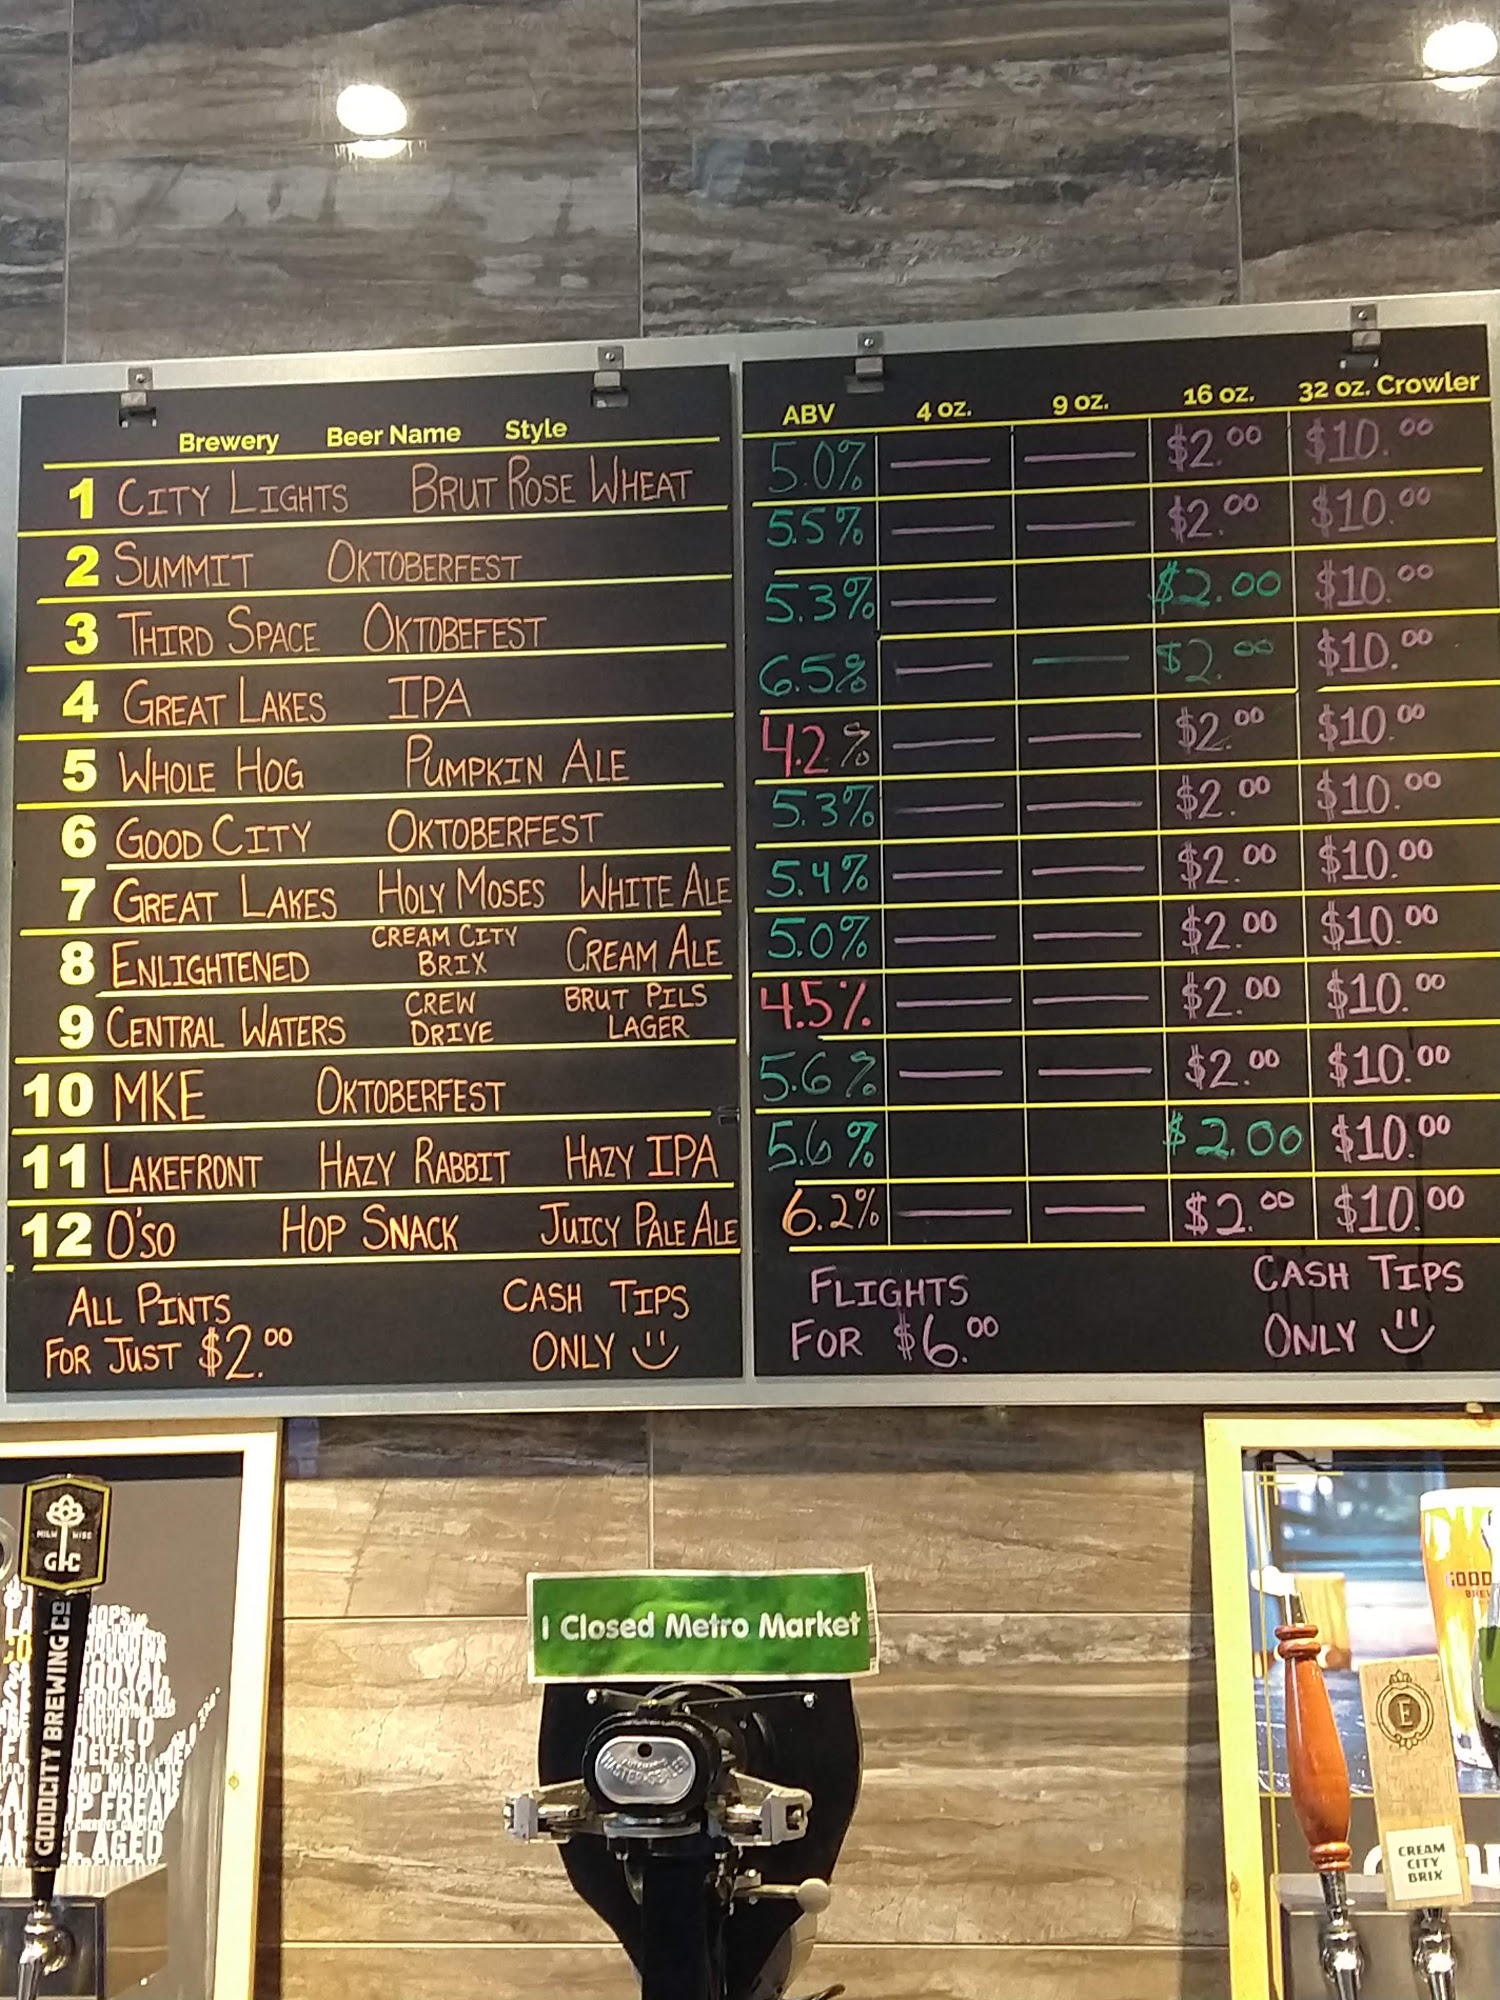 Brewery Beer Name Style
1 CITY LIGHTS BRUT ROSE WHEAT
2 SUMMIT OKTOBERFEST
3 THIRD SPACE OKTOBEFEST
4 GREAT LAKES IPA
5 WHOLE HOG PUMPKIN ALE
6 GOOD CITY OKTOBERFEST
7 GREAT LAKES HOLY MOSES WHITE ALE
8 ENLIGHTENED CREAM CITY BRIX CREAM ALE
9 CENTRAL WATERS CREW DRIVE BRUT PILS LAGER
10 MKE OKTOBERFEST
11 LAKEFRONT HAZY RABBIT HAZY IPA
12 O'SO HOP SNACK JUICY PALE ALE
ALL PINTS
FOR JUST $2.00
CASH TIPS
ONLY
ABV 4 oz. 9 oz. 16 oz. 32 oz. Crowler
5.0% — — $2.00 $10.00
5.5% — — $2.00 $10.00
5.3% — $2.00 $10.00
6.5% — — $2.00 $10.00
4.2% — — $2.00 $10.00
5.3% — — $2.00 $10.00
5.4% — — $2.00 $10.00
5.0% — — $2.00 $10.00
4.5% — — $2.00 $10.00
5.6% — — $2.00 $10.00
5.6% $2.00 $10.00
6.2% — — $2.00 $10.00
FLIGHTS
FOR $6.00
CASH TIPS
ONLY
I Closed Metro Market
MILW WISC
GC
GOODCITY BREWING CO
AND MADAME
LAGED
MASTER-SEALER
GOOD
E
CREAM
CITY
BRIX